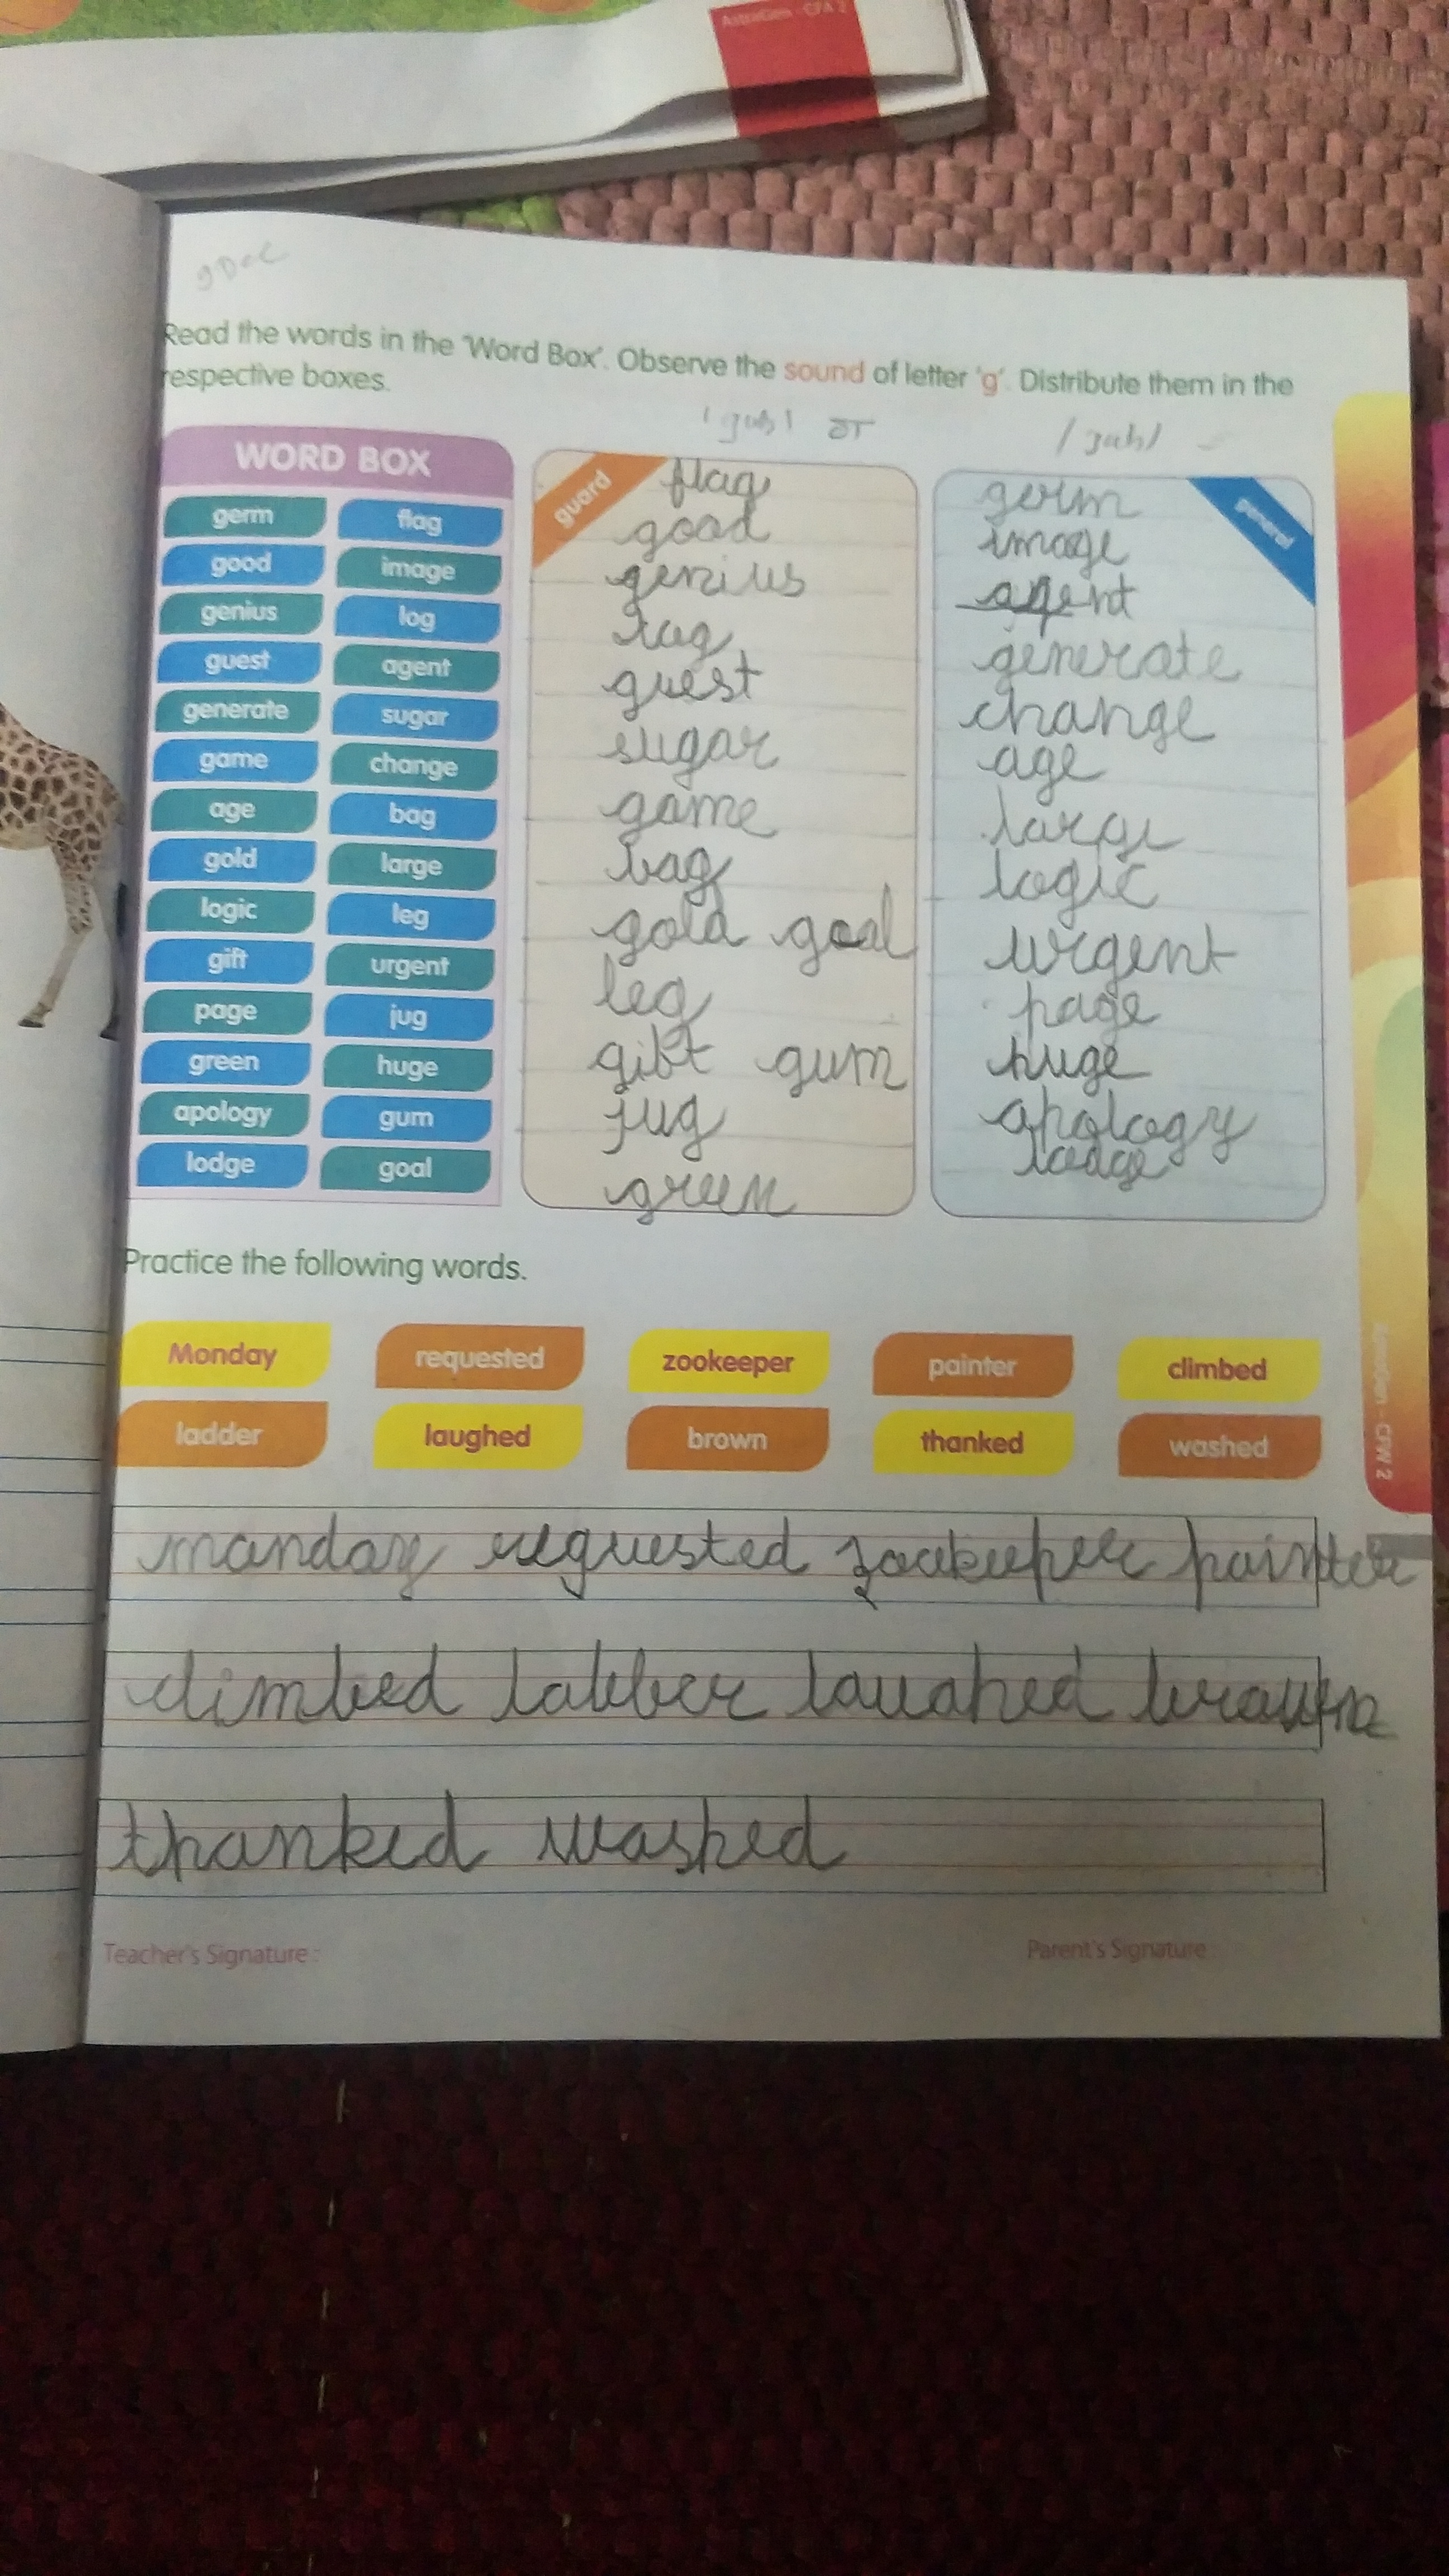 AstraGen - CFA 2
Read the words in the 'Word Box'. Observe the sound of letter 'g'. Distribute them in the
respective boxes.
WORD BOX
germ flag
good image
genius log
guest agent
generate sugar
game change
age bag
gold large
logic leg
gift urgent
page jug
green huge
apology gum
lodge goal
guard
flag
good
genius
guest
sugar
game
bag
gold goal
leg
gift gum
jug
green
general
germ
image
agent
generate
change
age
large
logic
urgent
page
huge
apology
lodge
Practice the following words.
Monday requested zookeeper painter climbed
ladder laughed brown thanked washed
manday requested zookeeper painter
climbed labber lauahed brown
thanked washed
Teacher's Signature :
Parent's Signature :
AstraGen - CFW 2